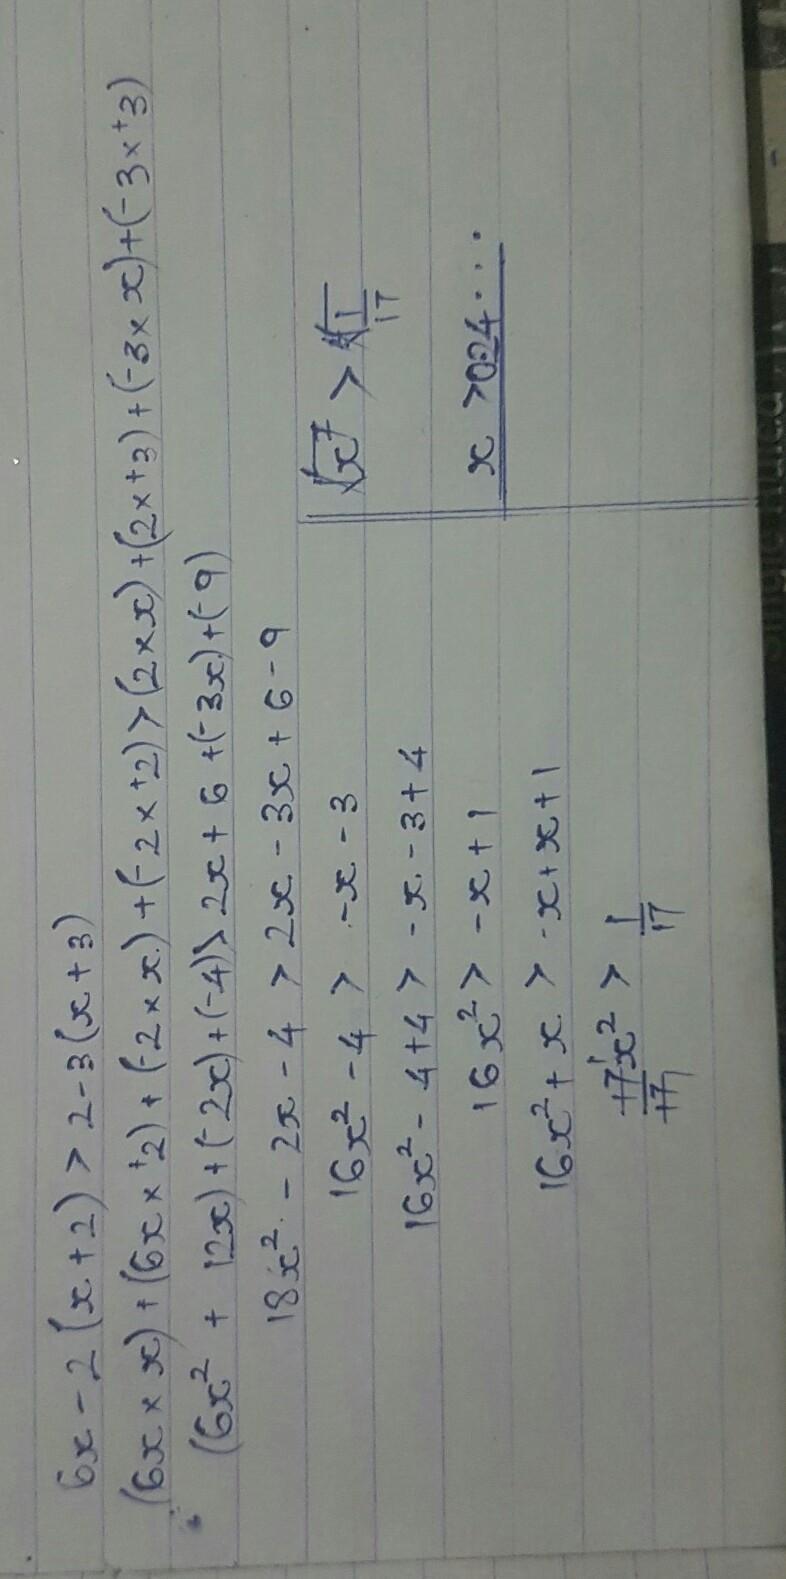 6x - 2(x+2) > 2-3(x+3)
(6x × x)+(6x×⁺2)+(-2×x)+(-2×⁺2)>(2×x)+(2×⁺3)+(-3×x)+(-3×⁺3)
(6x² + 12x)+(-2x)+(-4)>2x+6+(-3x)+(-9)
18x² - 2x - 4 > 2x - 3x + 6 - 9
16x² - 4 > -x - 3
16x² - 4+4 > -x - 3+4
16x² > -x + 1
16x² + x > -x + x + 1
17x²/17 > 1/17
√x² > √1/17
x > 0.24...